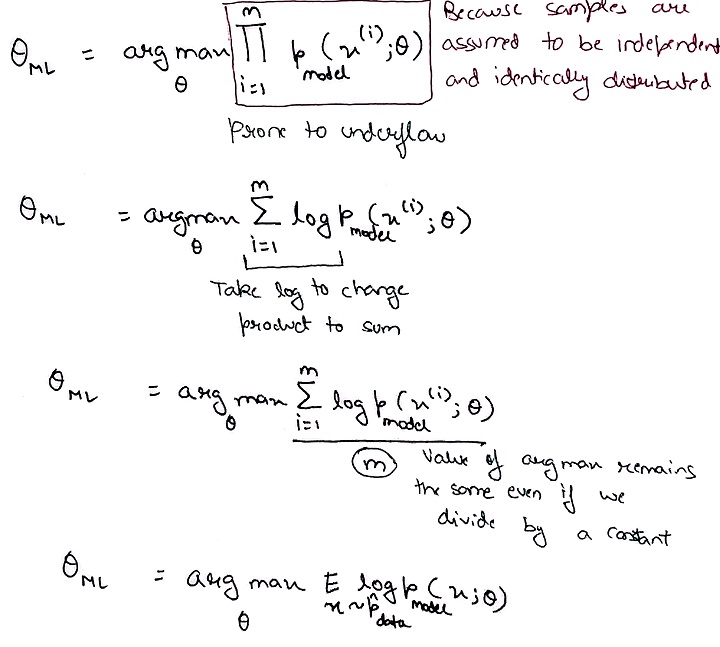 θ_ML = arg max_θ ∏_{i=1}^{m} p_model(x^(i); θ)
Because samples are
assumed to be independent
and identically distributed
Prone to underflow
θ_ML = argmax_θ ∑_{i=1}^{m} log p_model(x^(i); θ)
Take log to change
product to sum
θ_ML = arg max_θ ∑_{i=1}^{m} log p_model(x^(i); θ)
m
Value of argmax remains
the same even if we
divide by a constant
θ_ML = arg max_θ E_{x∼p̂_data} log p_model(x; θ)